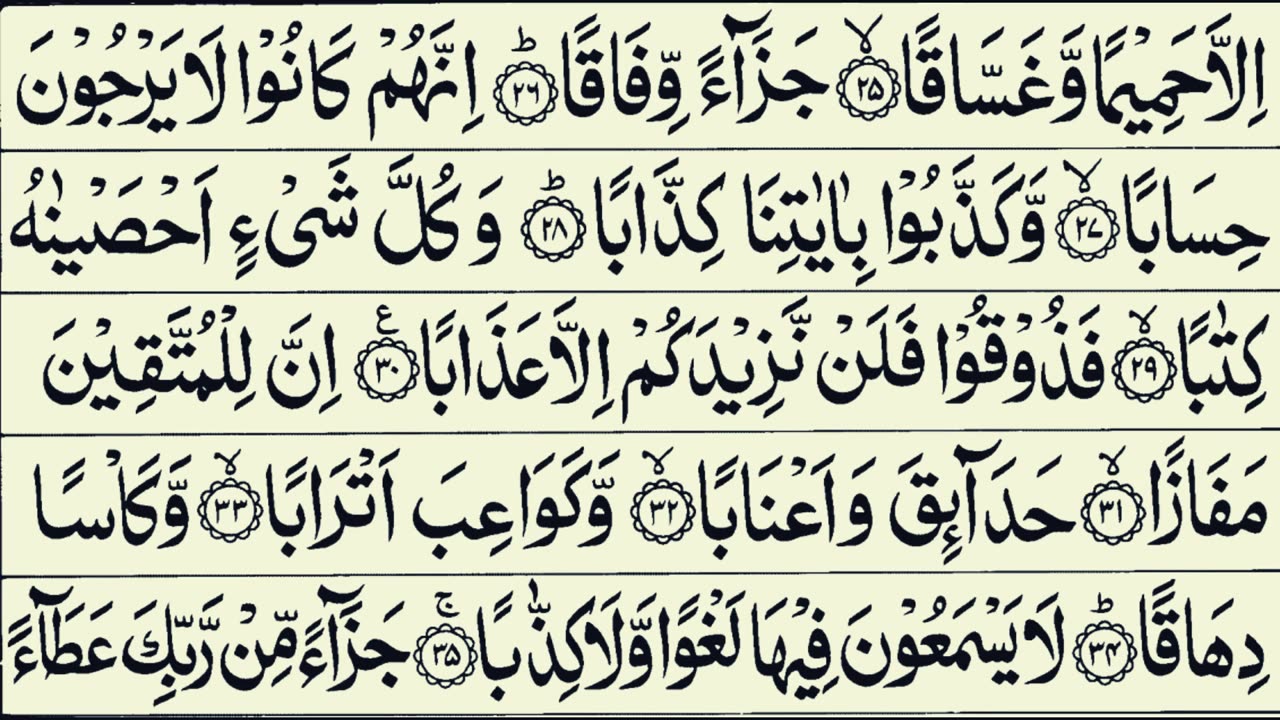 اِلَّا حَمِيْمًا وَّغَسَّاقًا ﴿۲۵﴾ۙ جَزَآءً وِّفَاقًا ﴿۲۶﴾ؕ اِنَّهُمْ كَانُوْا لَا يَرْجُوْنَ
حِسَابًا ﴿۲۷﴾ۙ وَّكَذَّبُوْا بِاٰيٰتِنَا كِذَّابًا ﴿۲۸﴾ؕ وَكُلَّ شَىْءٍ اَحْصَيْنٰهُ
كِتٰبًا ﴿۲۹﴾ۙ فَذُوْقُوْا فَلَنْ نَّزِيْدَكُمْ اِلَّا عَذَابًا ﴿۳۰﴾ع اِنَّ لِلْمُتَّقِيْنَ
مَفَازًا ﴿۳۱﴾ۙ حَدَآئِقَ وَاَعْنَابًا ﴿۳۲﴾ۙ وَّكَوَاعِبَ اَتْرَابًا ﴿۳۳﴾ۙ وَّكَاْسًا
دِهَاقًا ﴿۳۴﴾ؕ لَا يَسْمَعُوْنَ فِيْهَا لَغْوًا وَّلَا كِذّٰبًا ﴿۳۵﴾ۚ جَزَآءً مِّنْ رَّبِّكَ عَطَآءً